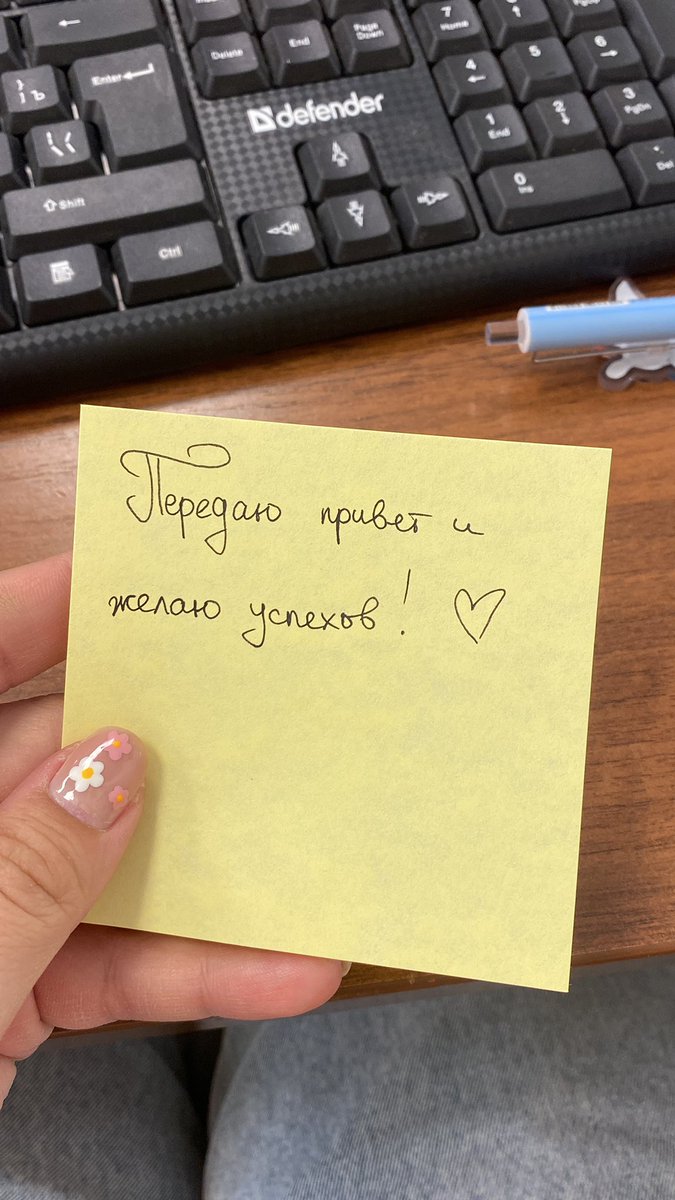 ←
Delete
End
Page Down
7 Home
1
PgDn
Enter
Ъ
4
5
6
defender
1 End
2
3 PgDn
Shift
0 Ins
Del
Ctrl
Передаю привет и
желаю успехов! ♡